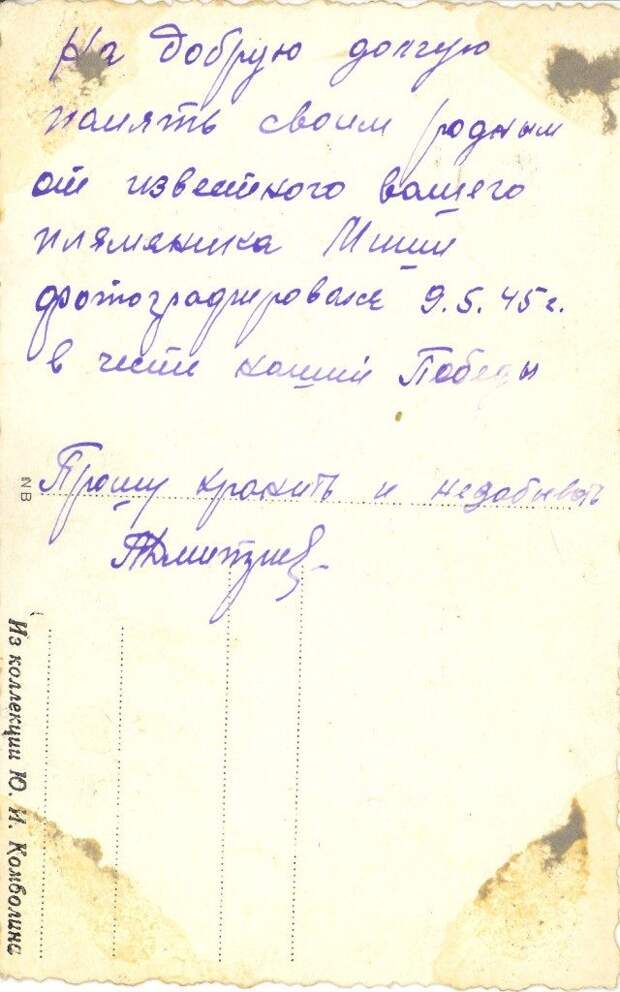 На добрую долгую
память своим родным
от известного вашего
племяника Миши
фотографировался 9.5.45 г.
в честь нашей Победы
Прошу хранить и незабывать
NB
Из коллекции Ю. И. Комболина